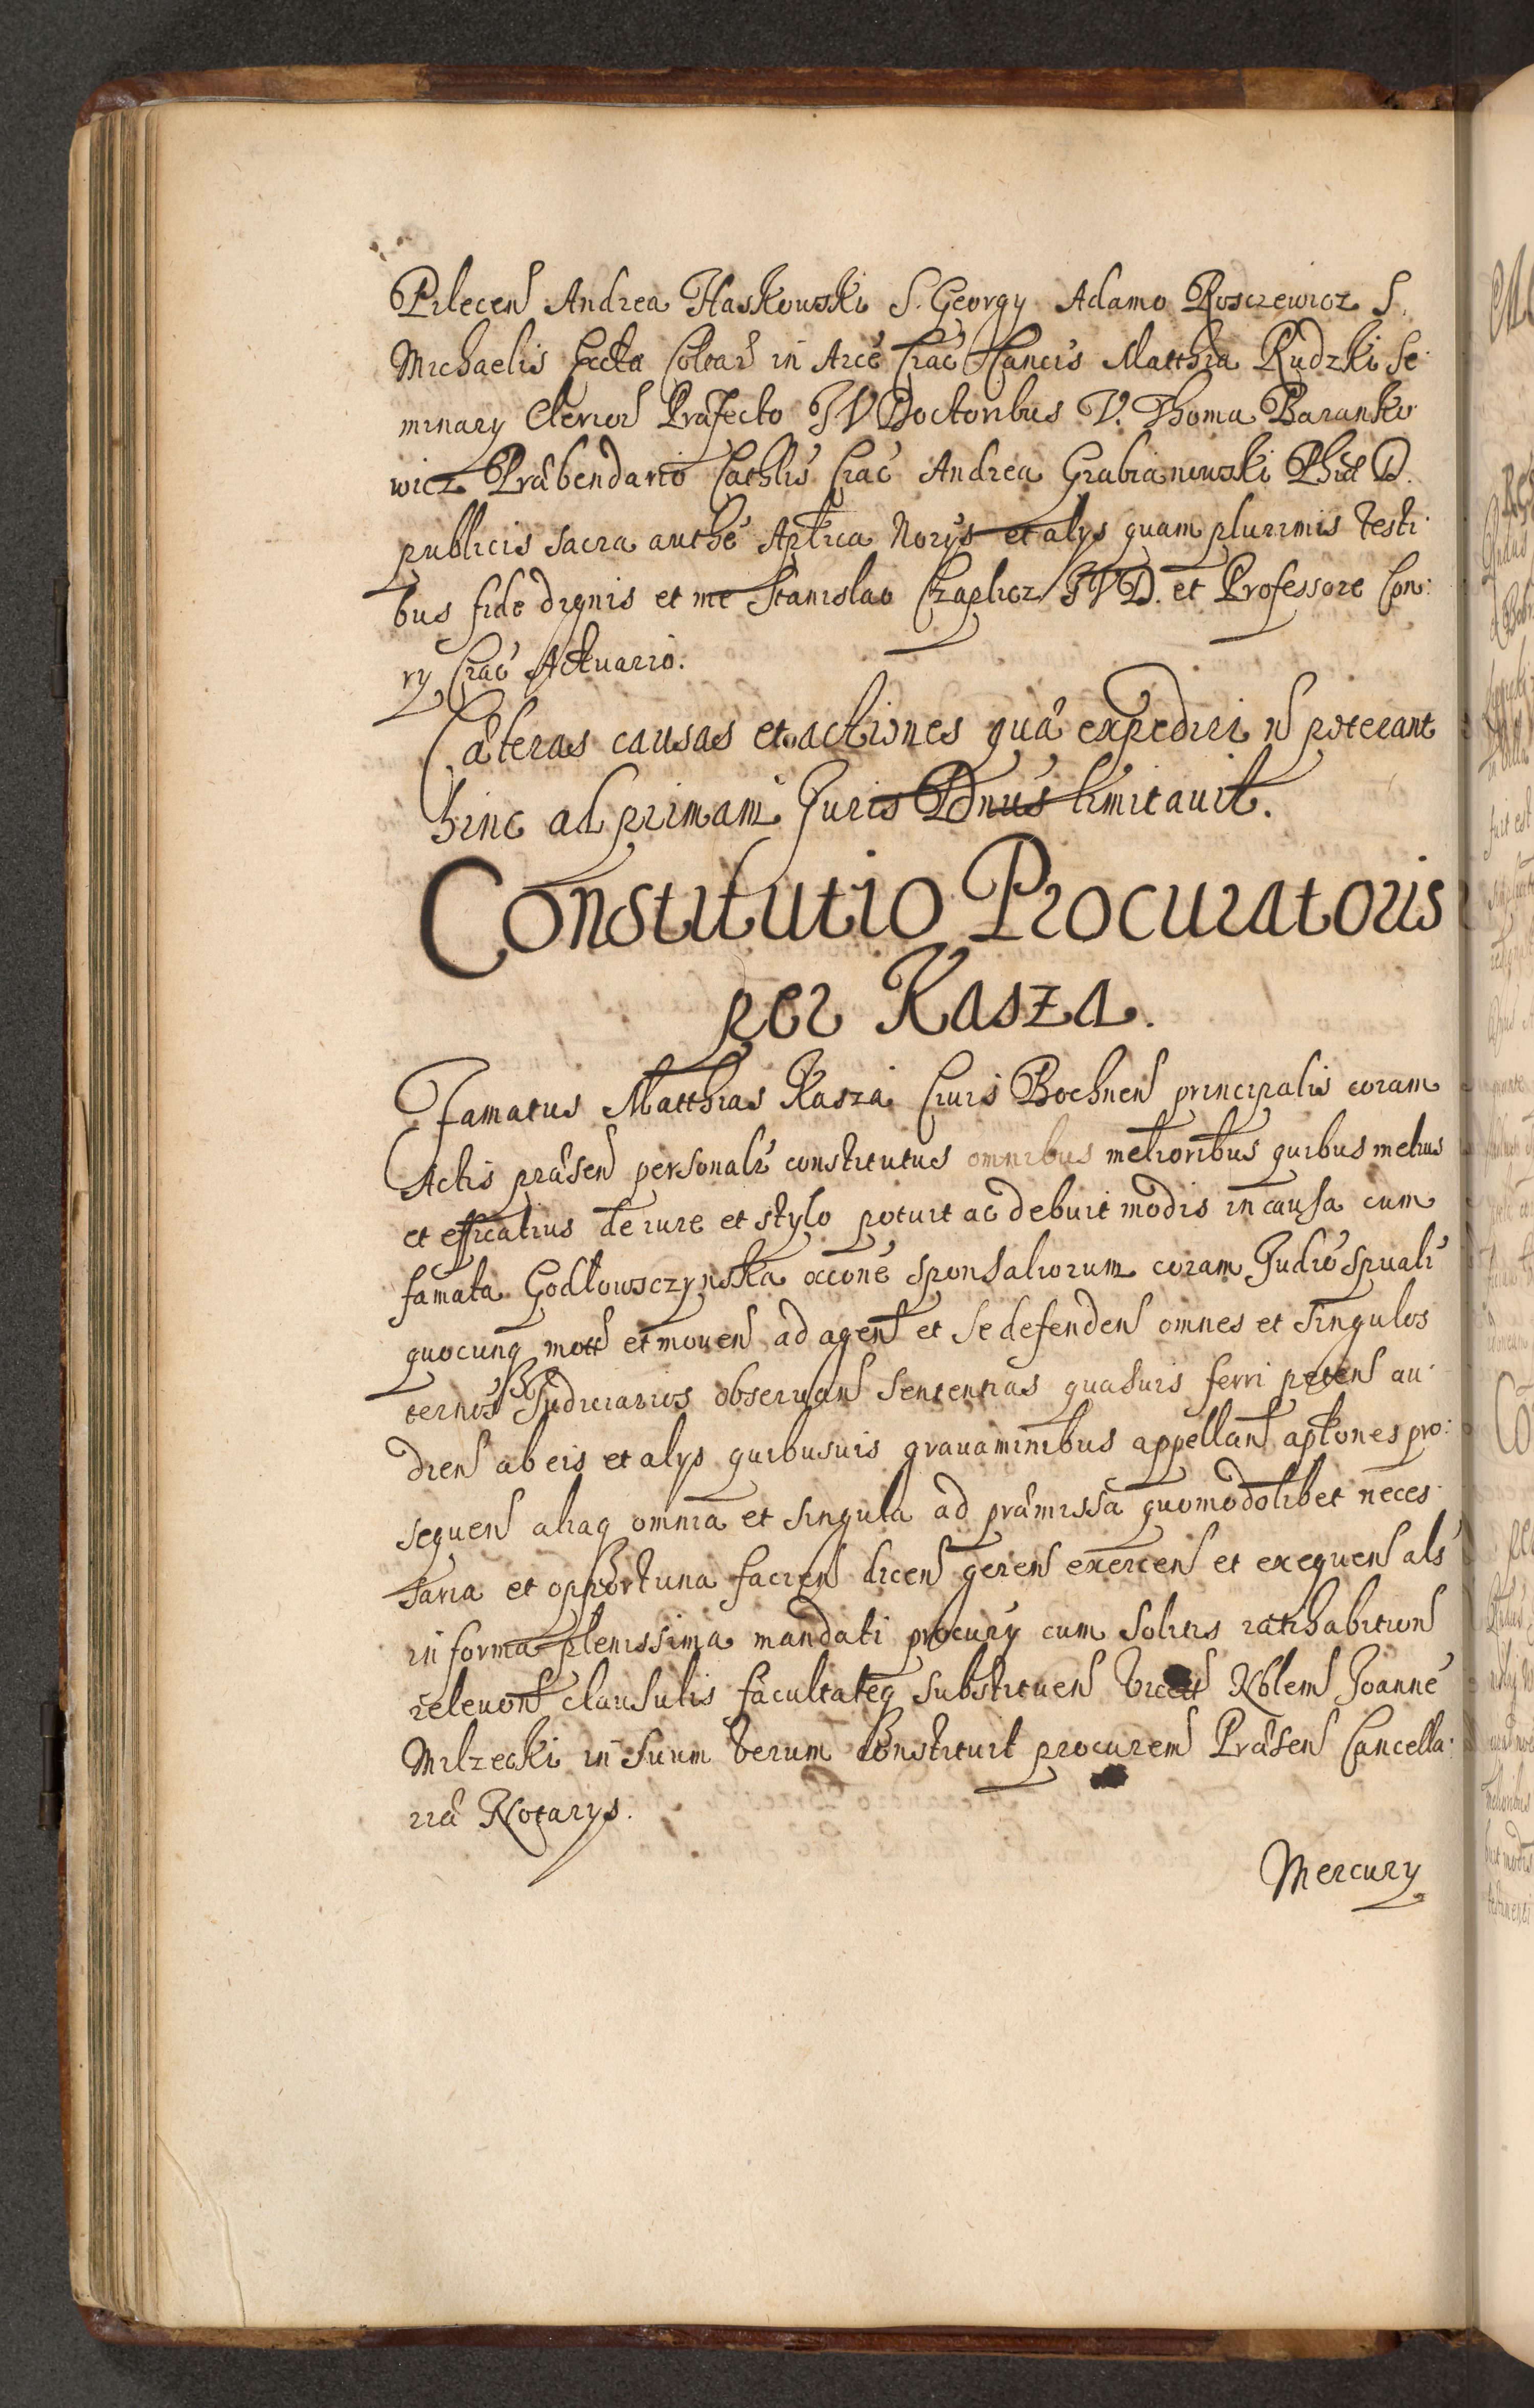 Pilecen Andrea Haskowski S. Georgy Adamo Rosczewicz S.
Michaelis Eccla Coleaꝝ in Arce Crac Cancis Matthia Rudzki Se-
minary Clericoꝝ Præfecto JV Doctoribus V. Thoma Baranko-
wicz Præbendario Cathlis Crac Andrea Grabianowski Phiæ D.
publicis sacra authe Aplica Norys et alys quam plurimis testi-
bus fide dignis et me Stanislao Czaplicz JVD. et Professore Con-
ry Crac Actuario.
Cæteras causas et actiones quæ expediri n poterant
hinc ad primam Juris Dnus limitavit.
Constitutio Procuratoris
per Kasza.
Famatus Matthias Kasza Civis Bochnen principalis coram
Actis præsen personalr constitutus omnibus melioribus quibus melius
et efficatius de iure et stylo potuit ac debuit modis in causa cum
famata Godłowsczynska occone sponsaliorum coram Judio spuali
quocunq mott et moven ad agen et se defenden omnes et singulos
ternos Judiciarios observan sententias quasuis ferri peten au-
dien ab eis et alys quibusuis gravaminibus appellan aplones pro-
sequen aliaq omnia et singula ad præmissa quomodolibet neces-
saria et opportuna facien dicen geren exercen et exequen als
in forma plenissima mandati procury cum solitis ratihabition
relevon clausulis facultateq substituen Nblem Joanne
Milzecki in suum verum constituit procurem Præsen Cancella-
riæ Notarys.
Mercury